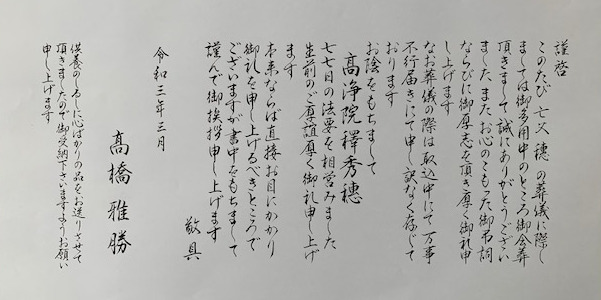 謹啓
このたび 亡父 穂 の葬儀に際し
ましては御多用中のところ御会葬
頂きまして誠にありがとうござい
ました また お心のこもった御弔詞
ならびに御厚志を頂き厚く御礼申
し上げます
なお葬儀の際は取込中にて万事
不行届きにて申し訳なく存じて
おります
お陰をもちまして
高浄院釋秀穂
七七日の法要を相営みました
生前のご厚誼厚く御礼申し上げ
ます
本来ならば直接お目にかかり
御礼を申し上げるべきところで
ございますが書中をもちまして
謹んで御挨拶申し上げます
敬具
令和三年三月
髙橋雅勝
供養のしるしに心ばかりの品をお送りさせて
頂きましたので御受納下さいますようお願い
申し上げます